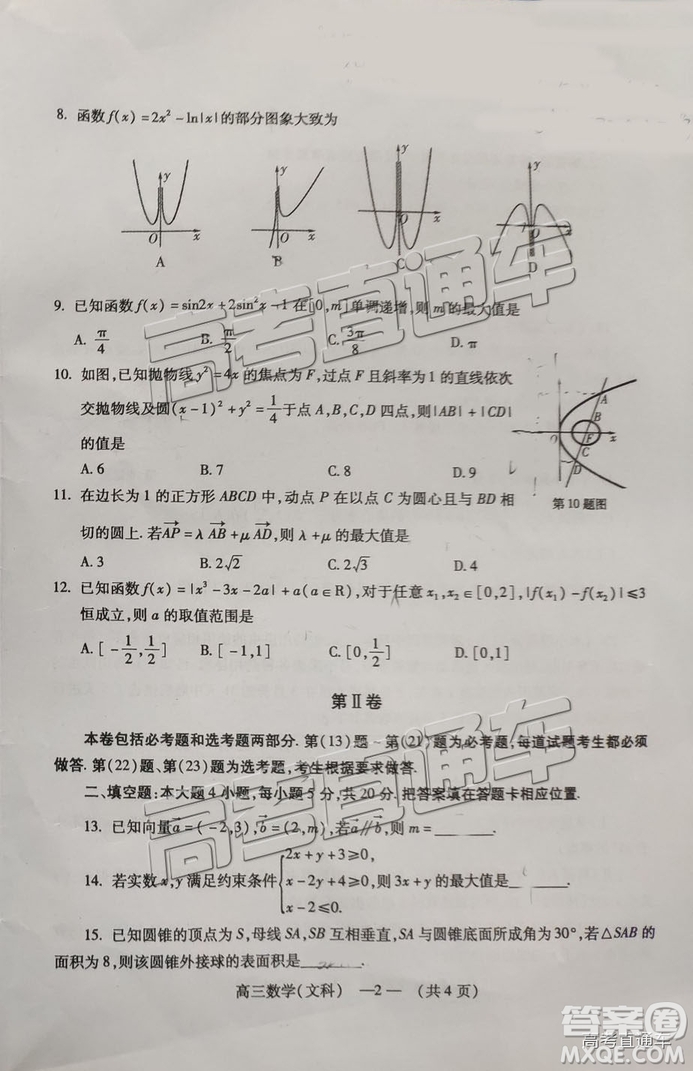 8. 函数f(x)=2x²-ln|x|的部分图象大致为
y y y y
O x O x O x O x
A B C D
9. 已知函数f(x)=sin2x+2sin²x-1在[0,m]单调递增,则m的最大值是
A. π/4 B. π/2 C. 3π/8 D. π
10. 如图,已知抛物线y²=4x的焦点为F,过点F且斜率为1的直线依次
交抛物线及圆(x-1)²+y²=1/4于点A,B,C,D四点,则|AB|+|CD|
的值是
A. 6 B. 7 C. 8 D. 9
y A B O F x C D
第10题图
11. 在边长为1的正方形ABCD中,动点P在以点C为圆心且与BD相
切的圆上. 若AP=λAB+μAD,则λ+μ的最大值是
A. 3 B. 2√2 C. 2√3 D. 4
12. 已知函数f(x)=|x³-3x-2a|+a(a∈R),对于任意x₁,x₂∈[0,2],|f(x₁)-f(x₂)|≤3
恒成立,则a的取值范围是
A. [-1/2,1/2] B. [-1,1] C. [0,1/2] D. [0,1]
第Ⅱ卷
本卷包括必考题和选考题两部分. 第(13)题~第(21)题为必考题,每道试题考生都必须
做答. 第(22)题、第(23)题为选考题,考生根据要求做答.
二、填空题:本大题4小题,每小题5分,共20分. 把答案填在答题卡相应位置.
13. 已知向量a=(-2,3),b=(2,m),若a∥b,则m=
14. 若实数x,y满足约束条件{2x+y+3≥0, x-2y+4≥0, x-2≤0. 则3x+y的最大值是
15. 已知圆锥的顶点为S,母线SA,SB互相垂直,SA与圆锥底面所成角为30°,若△SAB的
面积为8,则该圆锥外接球的表面积是
高三数学(文科) —2— (共4页)
高考直通车
高考直通车
答案圈
高考直通车
MXQE.COM